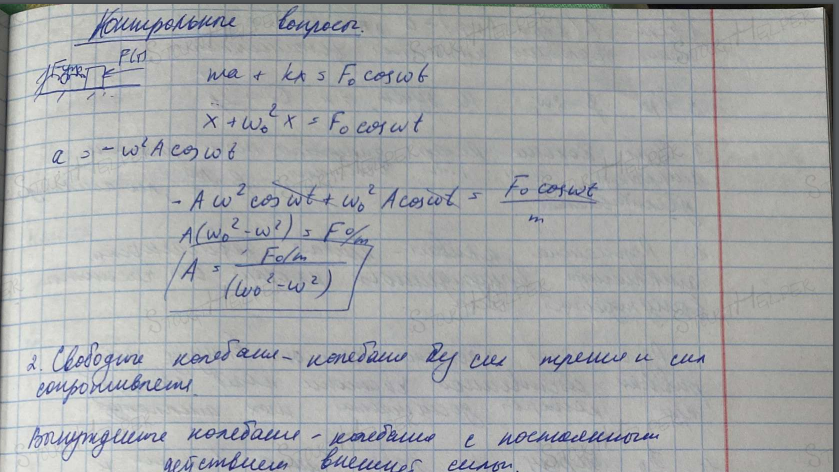 Контрольные вопросы.
Fупр F(t)
ma + kx = F₀ cosωt
ẍ + ω₀² x = F₀ cosωt
a = - ω² A cosωt
- A ω² cosωt + ω₀² A cosωt = F₀ cosωt / m
A(ω₀² - ω²) = F₀/m
A = F₀/m / (ω₀² - ω²)
2. Свободные колебания - колебания без сил трения и сил
сопротивления.
Вынужденные колебания - колебания с постоянным
действием внешней силы.